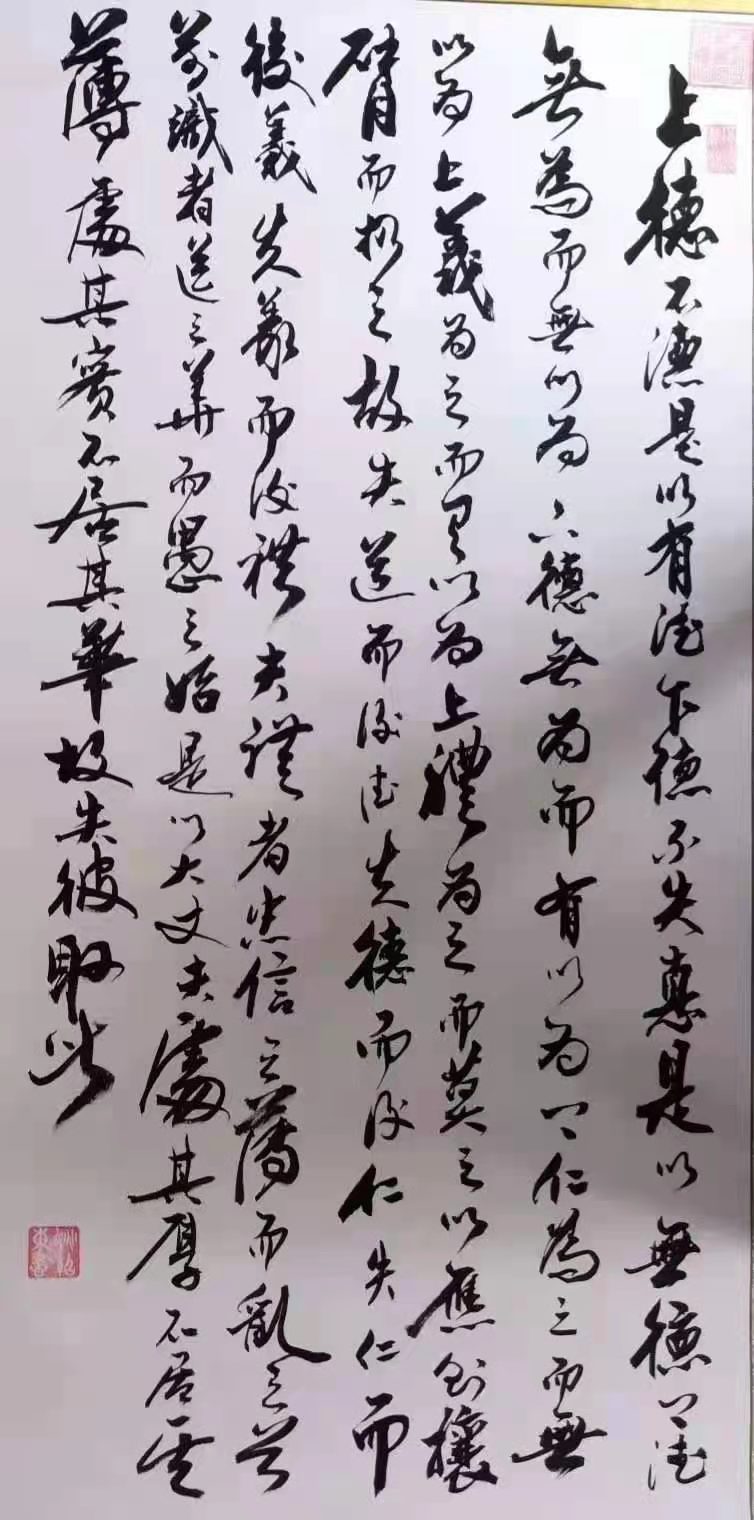 上德不德是以有德下德不失德是以無德上德
無為而無以為下德無為而有以為上仁為之而無
以為上義為之而有以為上禮為之而莫之以應則攘
臂而扔之故失道而後德失德而後仁失仁而
後義失義而後禮夫禮者忠信之薄而亂之首
前識者道之華而愚之始是以大丈夫處其厚不居其
薄處其實不居其華故失彼取此